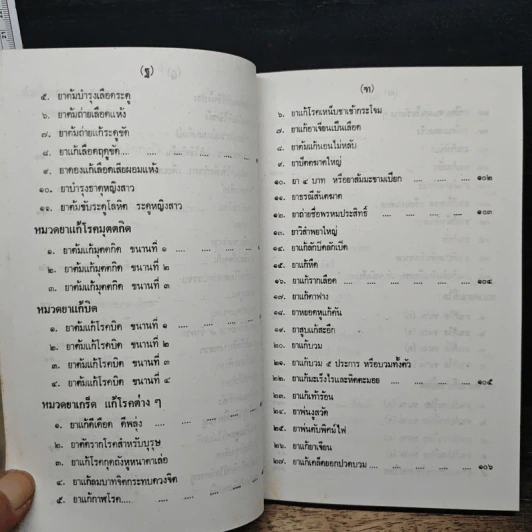 (ฐ)
๕. ยาต้มบำรุงเลือดระดู
๖. ยาต้มถ่ายเลือดแห้ง
๗. ยาต้มถ่ายแก้ระดูขัด
๘. ยาแก้เลือดฤดูขัด.... .... .... .... .... ....
๙. ยาดองแก้เลือดเสียผอมแห้ง
๑๐. ยาบำรุงธาตุหญิงสาว
๑๑. ยาต้มขับระดูโลหิต ระดูหญิงสาว
หมวดยาแก้โรคมุตตกิต
๑. ยาต้มแก้มุตตกิต ขนานที่ ๑ .... .... .... ....
๒. ยาต้มแก้มุตตกิต ขนานที่ ๒
๓. ยาต้มแก้มุตตกิด ขนานที่ ๓
หมวดยาแก้บิด
๑. ยาต้มแก้โรคบิด ขนานที่ ๑ .... .... ....
๒. ยาต้มแก้โรคบิด ขนานที่ ๒
๓. ยาต้มแก้โรคบิด ขนานที่ ๓
๔. ยาต้มแก้โรคบิด ขนานที่ ๔
หมวดยาเกร็ด แก้โรคต่าง ๆ
๑. ยาแก้ดีเดือด ดีพลุ่ง .... .... .... ....
๒. ยาตัดรากโรคสำหรับบุรุษ
๓. ยาแก้โรคกุดถังหูหนาตาเล่อ
๔. ยาแก้ลมบาทจิตกระทบดวงจิต
๕. ยาแก้กาฬโรค.... .... .... .... ....
(ฑ)
๖. ยาแก้โรคเหน็บชาเข้ากระโจม
๗. ยาแก้อาเจียนเป็นเลือด
๘. ยาต้มแก้นอนไม่หลับ
๙. ยาบิดคฆาตใหญ่
๑๐. ยา ๔ บาท หรือยาส้มมะขามเปียก .... .... ๑๐๒
๑๑. ยาธรณีสันฑฆาต
๑๒. ยาถ่ายชื่อพรหมประสิทธิ์ .... .... .... ๑๐๓
๑๓. ยาวิลำพยาใหญ่
๑๔. ยาแก้ลักปิดลักเปิด
๑๕. ยาแก้หืด
๑๖. ยาแก้รากเลือด .... .... .... .... .... .... ๑๐๔
๑๗. ยาแก้ตาฟาง
๑๘. ยาหยอดหูแก้คัน
๑๙. ยาสูบแก้สะอึก
๒๐. ยาแก้บวม
๒๑. ยาแก้บวม ๕ ประการ หรือบวมทั้งตัว
๒๒. ยาแก้มะเร็งไรและหิดตะมอย .... .... .... ๑๐๕
๒๓. ยาแก้เท้าร้อน
๒๔. ยาพ่นงูสวัด
๒๕. ยาพ่นดับพิศม์ไฟ
๒๖. ยาแก้อาเจียน
๒๗. ยาแก้เคล็ดยอกปวดบวม .... .... .... .... ๑๐๖